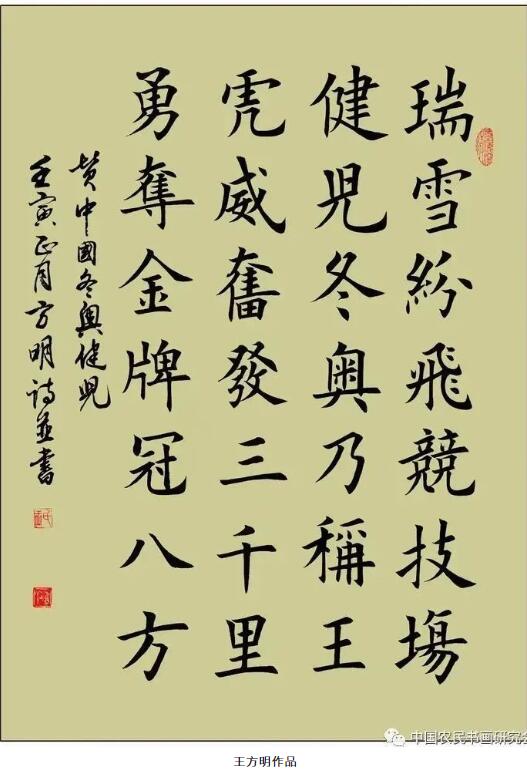 瑞雪紛飛競技場
健兒冬奥乃稱王
虎威奮發三千里
勇奪金牌冠八方
贊中國冬奥健兒
壬寅正月方明詩並書
中国农民书画研究会
王方明作品